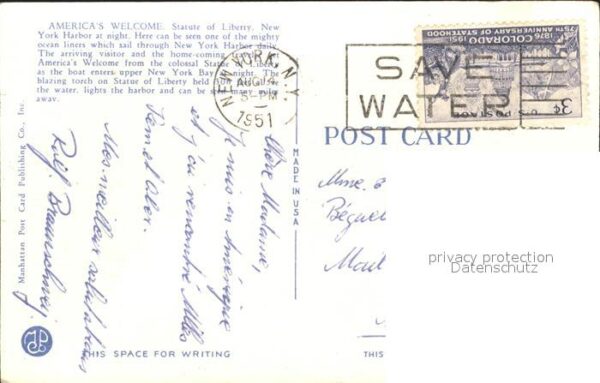 AMERICA'S WELCOME. Statue of Liberty, New
York Harbor at night. Here can be seen one of the mighty
ocean liners which sail through New York Harbor daily.
The arriving visitor and the home-coming
America's Welcome from the colossal Statue of Liberty
as the boat enters upper New York Bay at night. The
blazing torch on Statue of Liberty held
the water, lights the harbor and can be seen many miles
away.
NEW YORK, N.Y.
AUG
5-PM
1951
SAVE
WATER
1876 COLORADO 1951
75TH ANNIVERSARY OF STATEHOOD
3¢ U.S. POSTAGE
POST CARD
Manhattan Post Card Publishing Co., Inc.
MADE IN USA
Chère Madame,
Je suis en Amérique
et j'ai rencontré Miles
Mes meilleures salutations
Rolf Braunschweig
Mme.
privacy protection
Datenschutz
THIS SPACE FOR WRITING
THIS